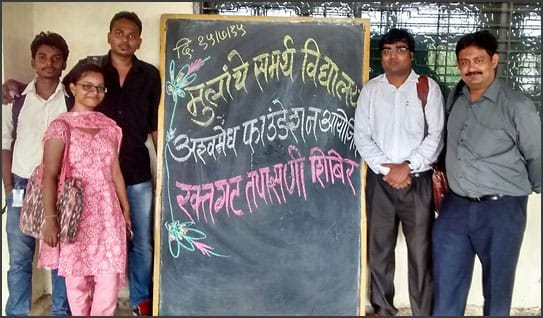 दि. १५/७/१५
मुलांचे समर्थ विद्यालय
अश्वमेध फाउंडेशन आयोजित
रक्तगट तपासणी शिबिर